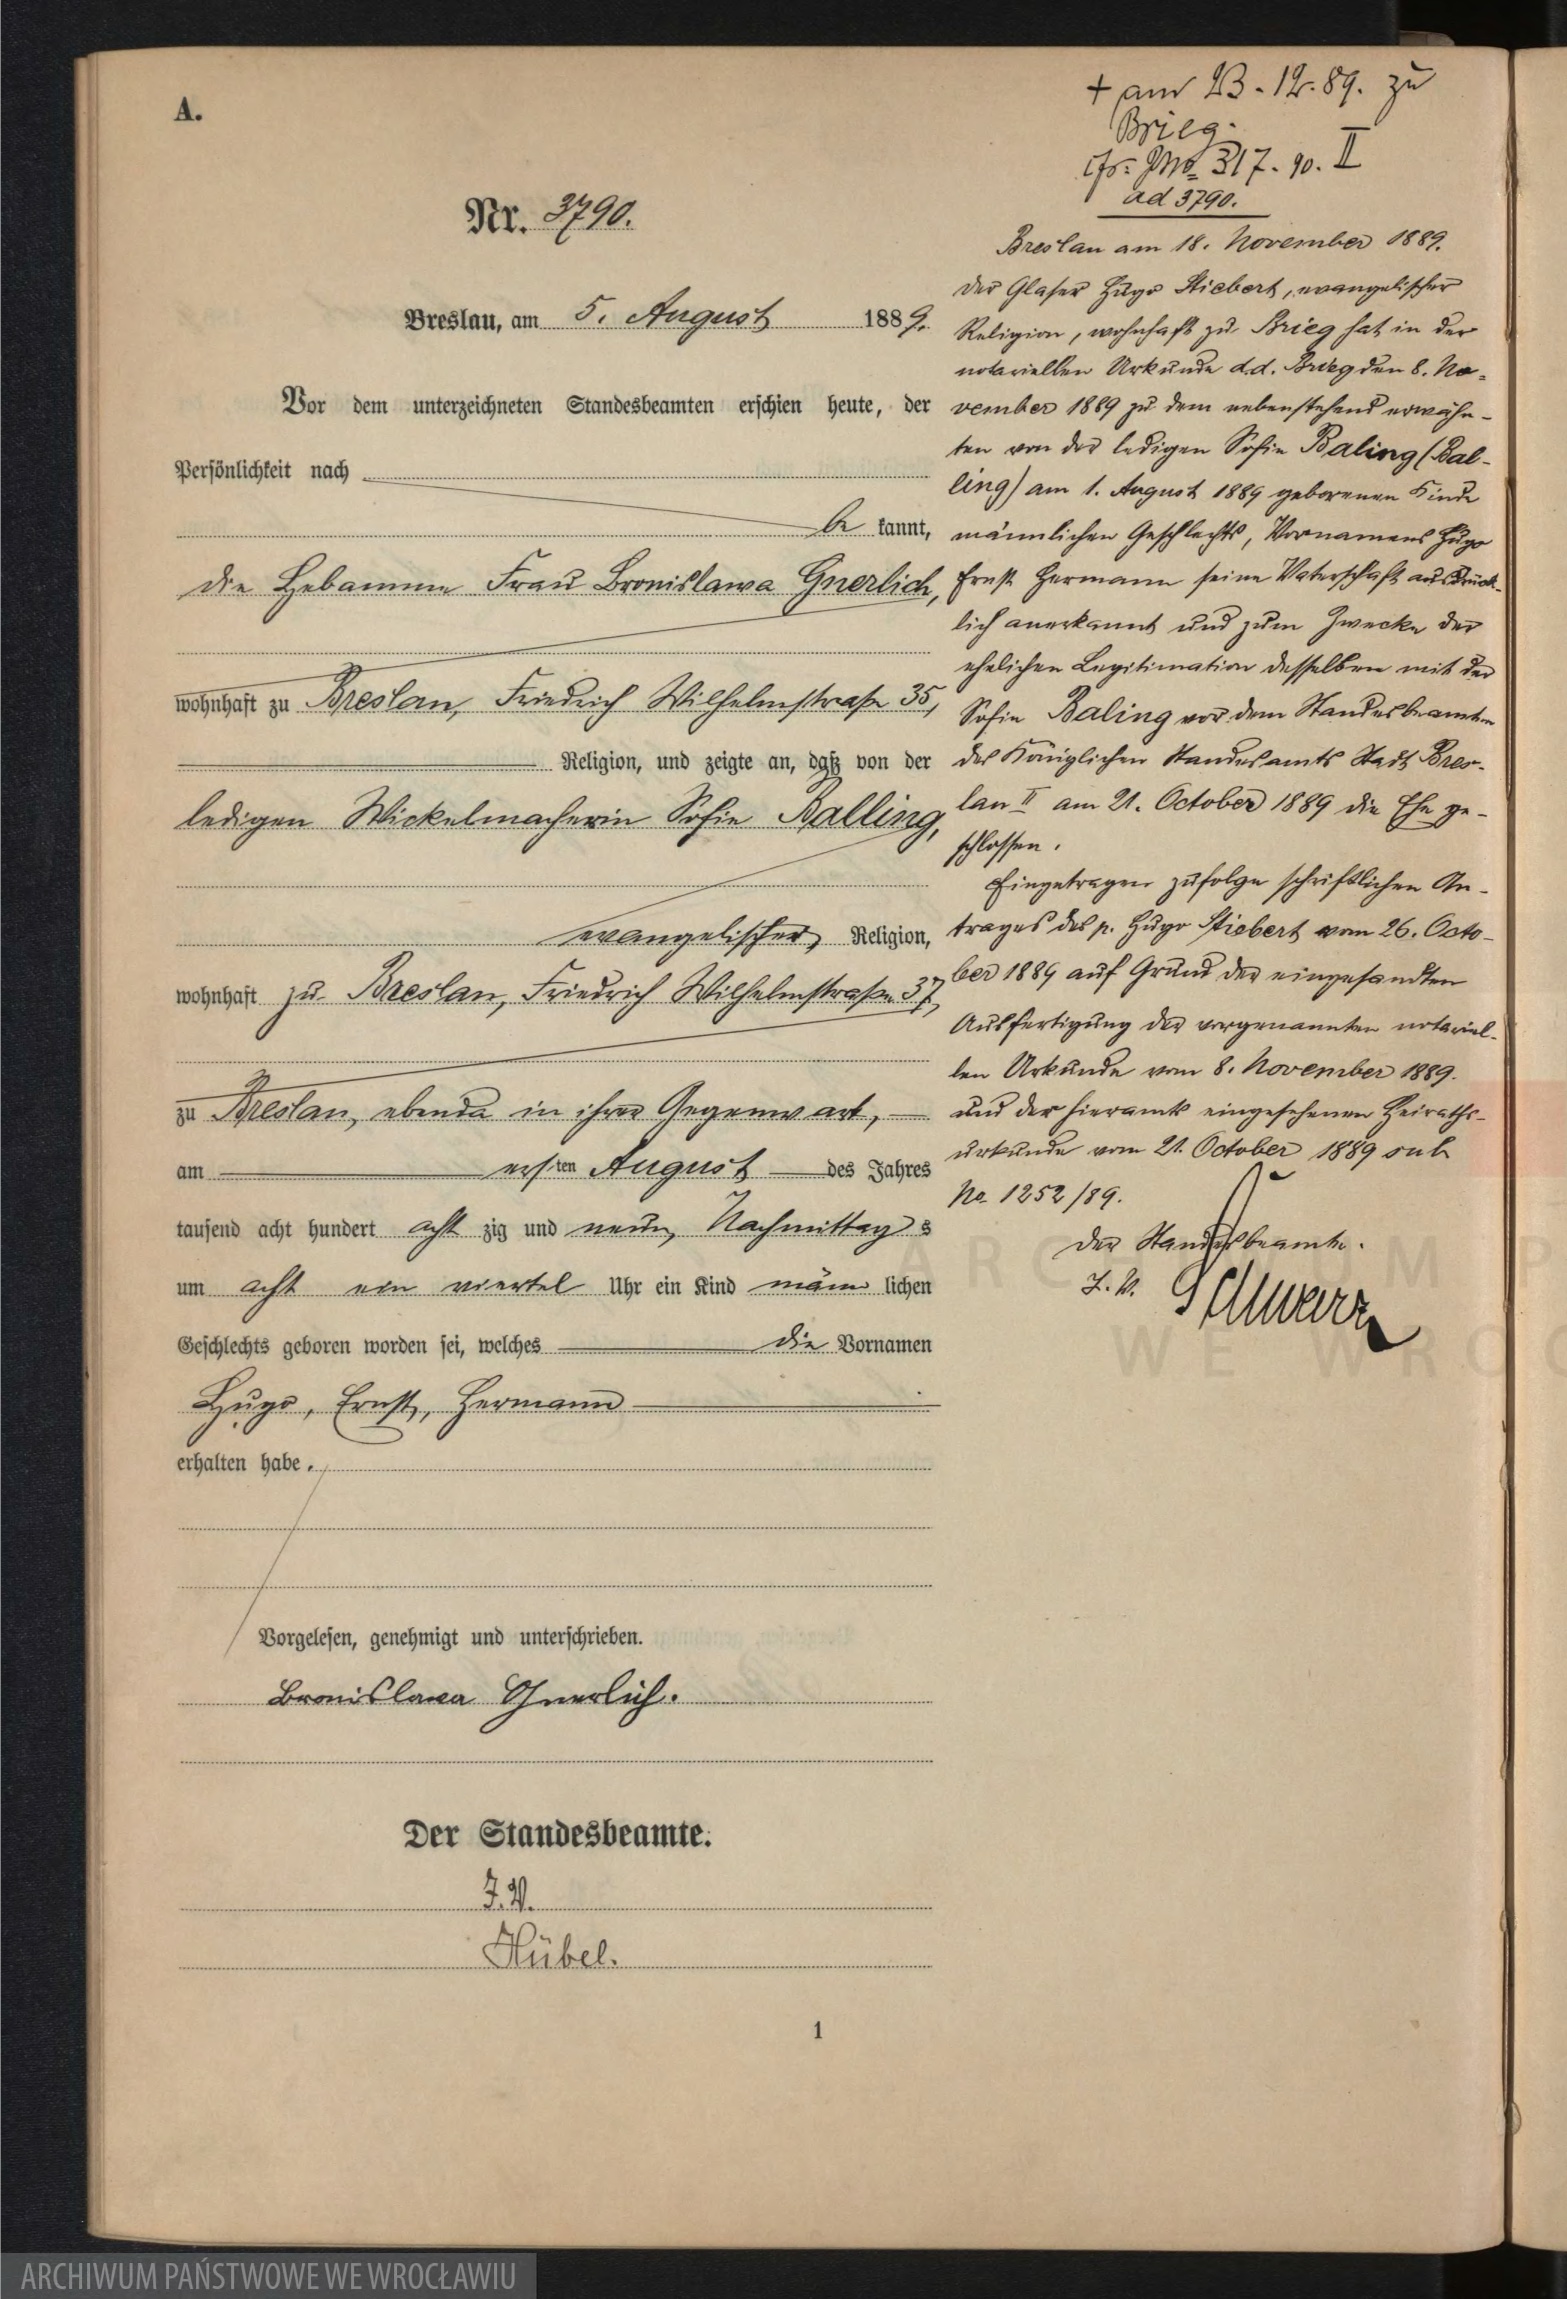 A.
Nr. 3790.
Breslau, am 5. August 1889.
Vor dem unterzeichneten Standesbeamten erschien heute, der
Persönlichkeit nach
be kannt,
die Hebamme Frau Bronislawa Gnerlich,
wohnhaft zu Breslau, Friedrich Wilhelmstraße 35,
Religion, und zeigte an, daß von der
ledigen Wickelmacherin Sofie Balling,
evangelischer Religion,
wohnhaft zu Breslau, Friedrich Wilhelmstraße 37,
zu Breslau, ebenda in ihrer Gegenwart,
am ersten August des Jahres
tausend acht hundert acht zig und neun, Nachmittag s
um acht ein viertel Uhr ein Kind männ lichen
Geschlechts geboren worden sei, welches die Vornamen
Hugo, Ernst, Hermann
erhalten habe.
Vorgelesen, genehmigt und unterschrieben.
Bronislawa Gnerlich.
Der Standesbeamte.
I.V.
Hübel.
1
+ am 23.12.89. zu
Brieg.
317.90. II
ad 3790.
Breslau am 18. November 1889.
Der Glaser Hugo Stiebert, evangelischer
Religion, wohnhaft zu Brieg hat in der
notariellen Urkunde d.d. Brieg den 8. No-
vember 1889 zu dem nebenstehend erwähn-
ten von der ledigen Sofie Baling (Bal-
ling) am 1. August 1889 geborenen Kinde
männlichen Geschlechts, Vornamens Hugo
Ernst Hermann seine Vaterschaft ausdrück-
lich anerkannt und zum Zwecke der
ehelichen Legitimation desselben mit der
Sofie Baling vor dem Standesbeamten
des Königlichen Standesamts Stadt Bres-
lau II am 21. October 1889 die Ehe ge-
schlossen.
Eingetragen zufolge schriftlichen An-
trages des p. Hugo Stiebert vom 26. Octo-
ber 1889 auf Grund der eingesandten
Ausfertigung der vorgenannten notariel-
len Urkunde vom 8. November 1889.
und der hieramts eingesehenen Heiraths-
urkunde vom 21. October 1889 sub
No. 1252/89.
Der Standesbeamte.
I.V. Schwarz
ARCHIWUM P
WE WROC
ARCHIWUM PAŃSTWOWE WE WROCŁAWIU